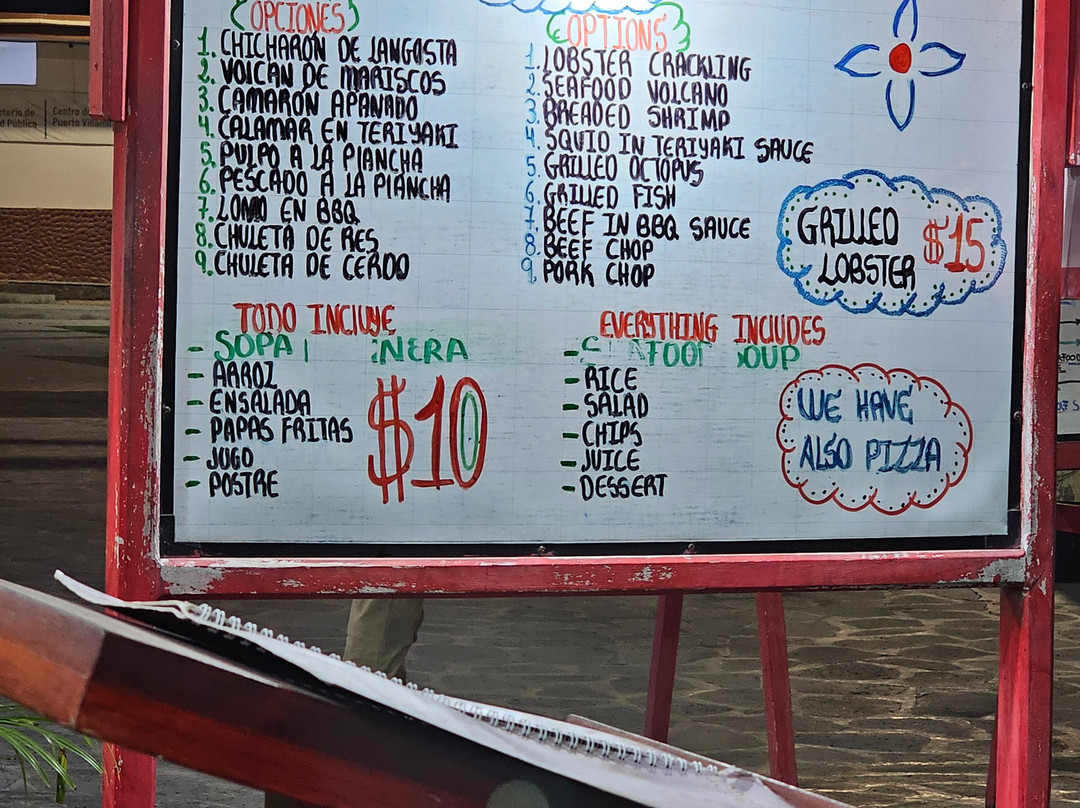 OPCIONES
1. CHICHARÓN DE LANGOSTA
2. VOLCAN DE MARISCOS
3. CAMARÓN APANADO
4. CALAMAR EN TERIYAKI
5. PULPO A LA PLANCHA
6. PESCADO A LA PLANCHA
7. LOMO EN BBQ
8. CHULETA DE RES
9. CHULETA DE CERDO
TODO INCLUYE
- SOPA
- ARROZ
- ENSALADA
- PAPAS FRITAS
- JUGO
- POSTRE
$10
OPTIONS
1. LOBSTER CRACKLING
2. SEAFOOD VOLCANO
3. BREADED SHRIMP
4. SQUID IN TERIYAKI SAUCE
5. GRILLED OCTOPUS
6. GRILLED FISH
7. BEEF IN BBQ SAUCE
8. BEEF CHOP
9. PORK CHOP
EVERYTHING INCLUDES
- RICE
- SALAD
- CHIPS
- JUICE
- DESSERT
GRILLED LOBSTER $15
WE HAVE
ALSO PIZZA
Centro de
Puerto